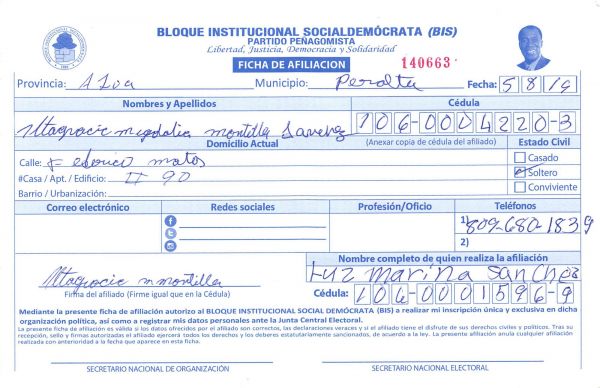 BLOQUE INSTITUCIONAL SOCIALDEMÓCRATA (BIS)
PARTIDO PEÑAGOMISTA
Libertad, Justicia, Democracia y Solidaridad
FICHA DE AFILIACION 140663
Provincia: Azua Municipio: Peralta Fecha: 5 8 19
Nombres y Apellidos Cédula
Altagracia magdalia montilla Sanchez 106-0004220-3
Domicilio Actual (Anexar copia de cédula del afiliado) Estado Civil
Calle: Federico matos Casado
#Casa / Apt. / Edificio: # 90 Soltero
Barrio / Urbanización: Conviviente
Correo electrónico Redes sociales Profesión/Oficio Teléfonos
1) 809-680-1839
2)
Nombre completo de quien realiza la afiliación
Altagracia m montilla Luz Marina Sanchez
Firma del afiliado (Firme igual que en la Cédula) Cédula: 106-0001596-9
Mediante la presente ficha de afiliación autorizo al BLOQUE INSTITUCIONAL SOCIAL DEMÓCRATA (BIS) a realizar mi inscripción única y exclusiva en dicha
organización política, así como a registrar mis datos personales ante la Junta Central Electoral.
La presente ficha de afiliación es válida si los datos ofrecidos por el afiliado son correctos, las declaraciones veraces y si el afiliado tiene el disfrute de sus derechos civiles y políticos. Tras su
recepción, sello y firmas autorizadas el afiliado ejercerá todos los derechos y los deberes estatutariamente sancionados, de acuerdo a la ley. La presente afiliación anula cualquier afiliación
realizada con anterioridad a la fecha que aparece en esta ficha.
SECRETARIO NACIONAL DE ORGANIZACIÓN SECRETARIO NACIONAL ELECTORAL